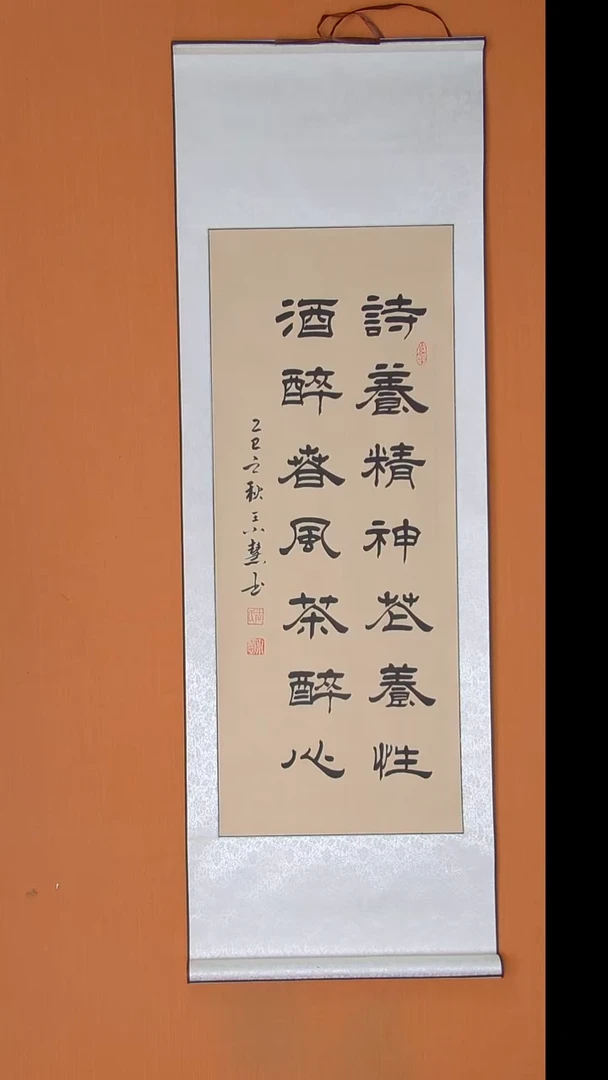 詩養精神花養性
酒醉春風茶醉心
乙巳之秋王小慧书